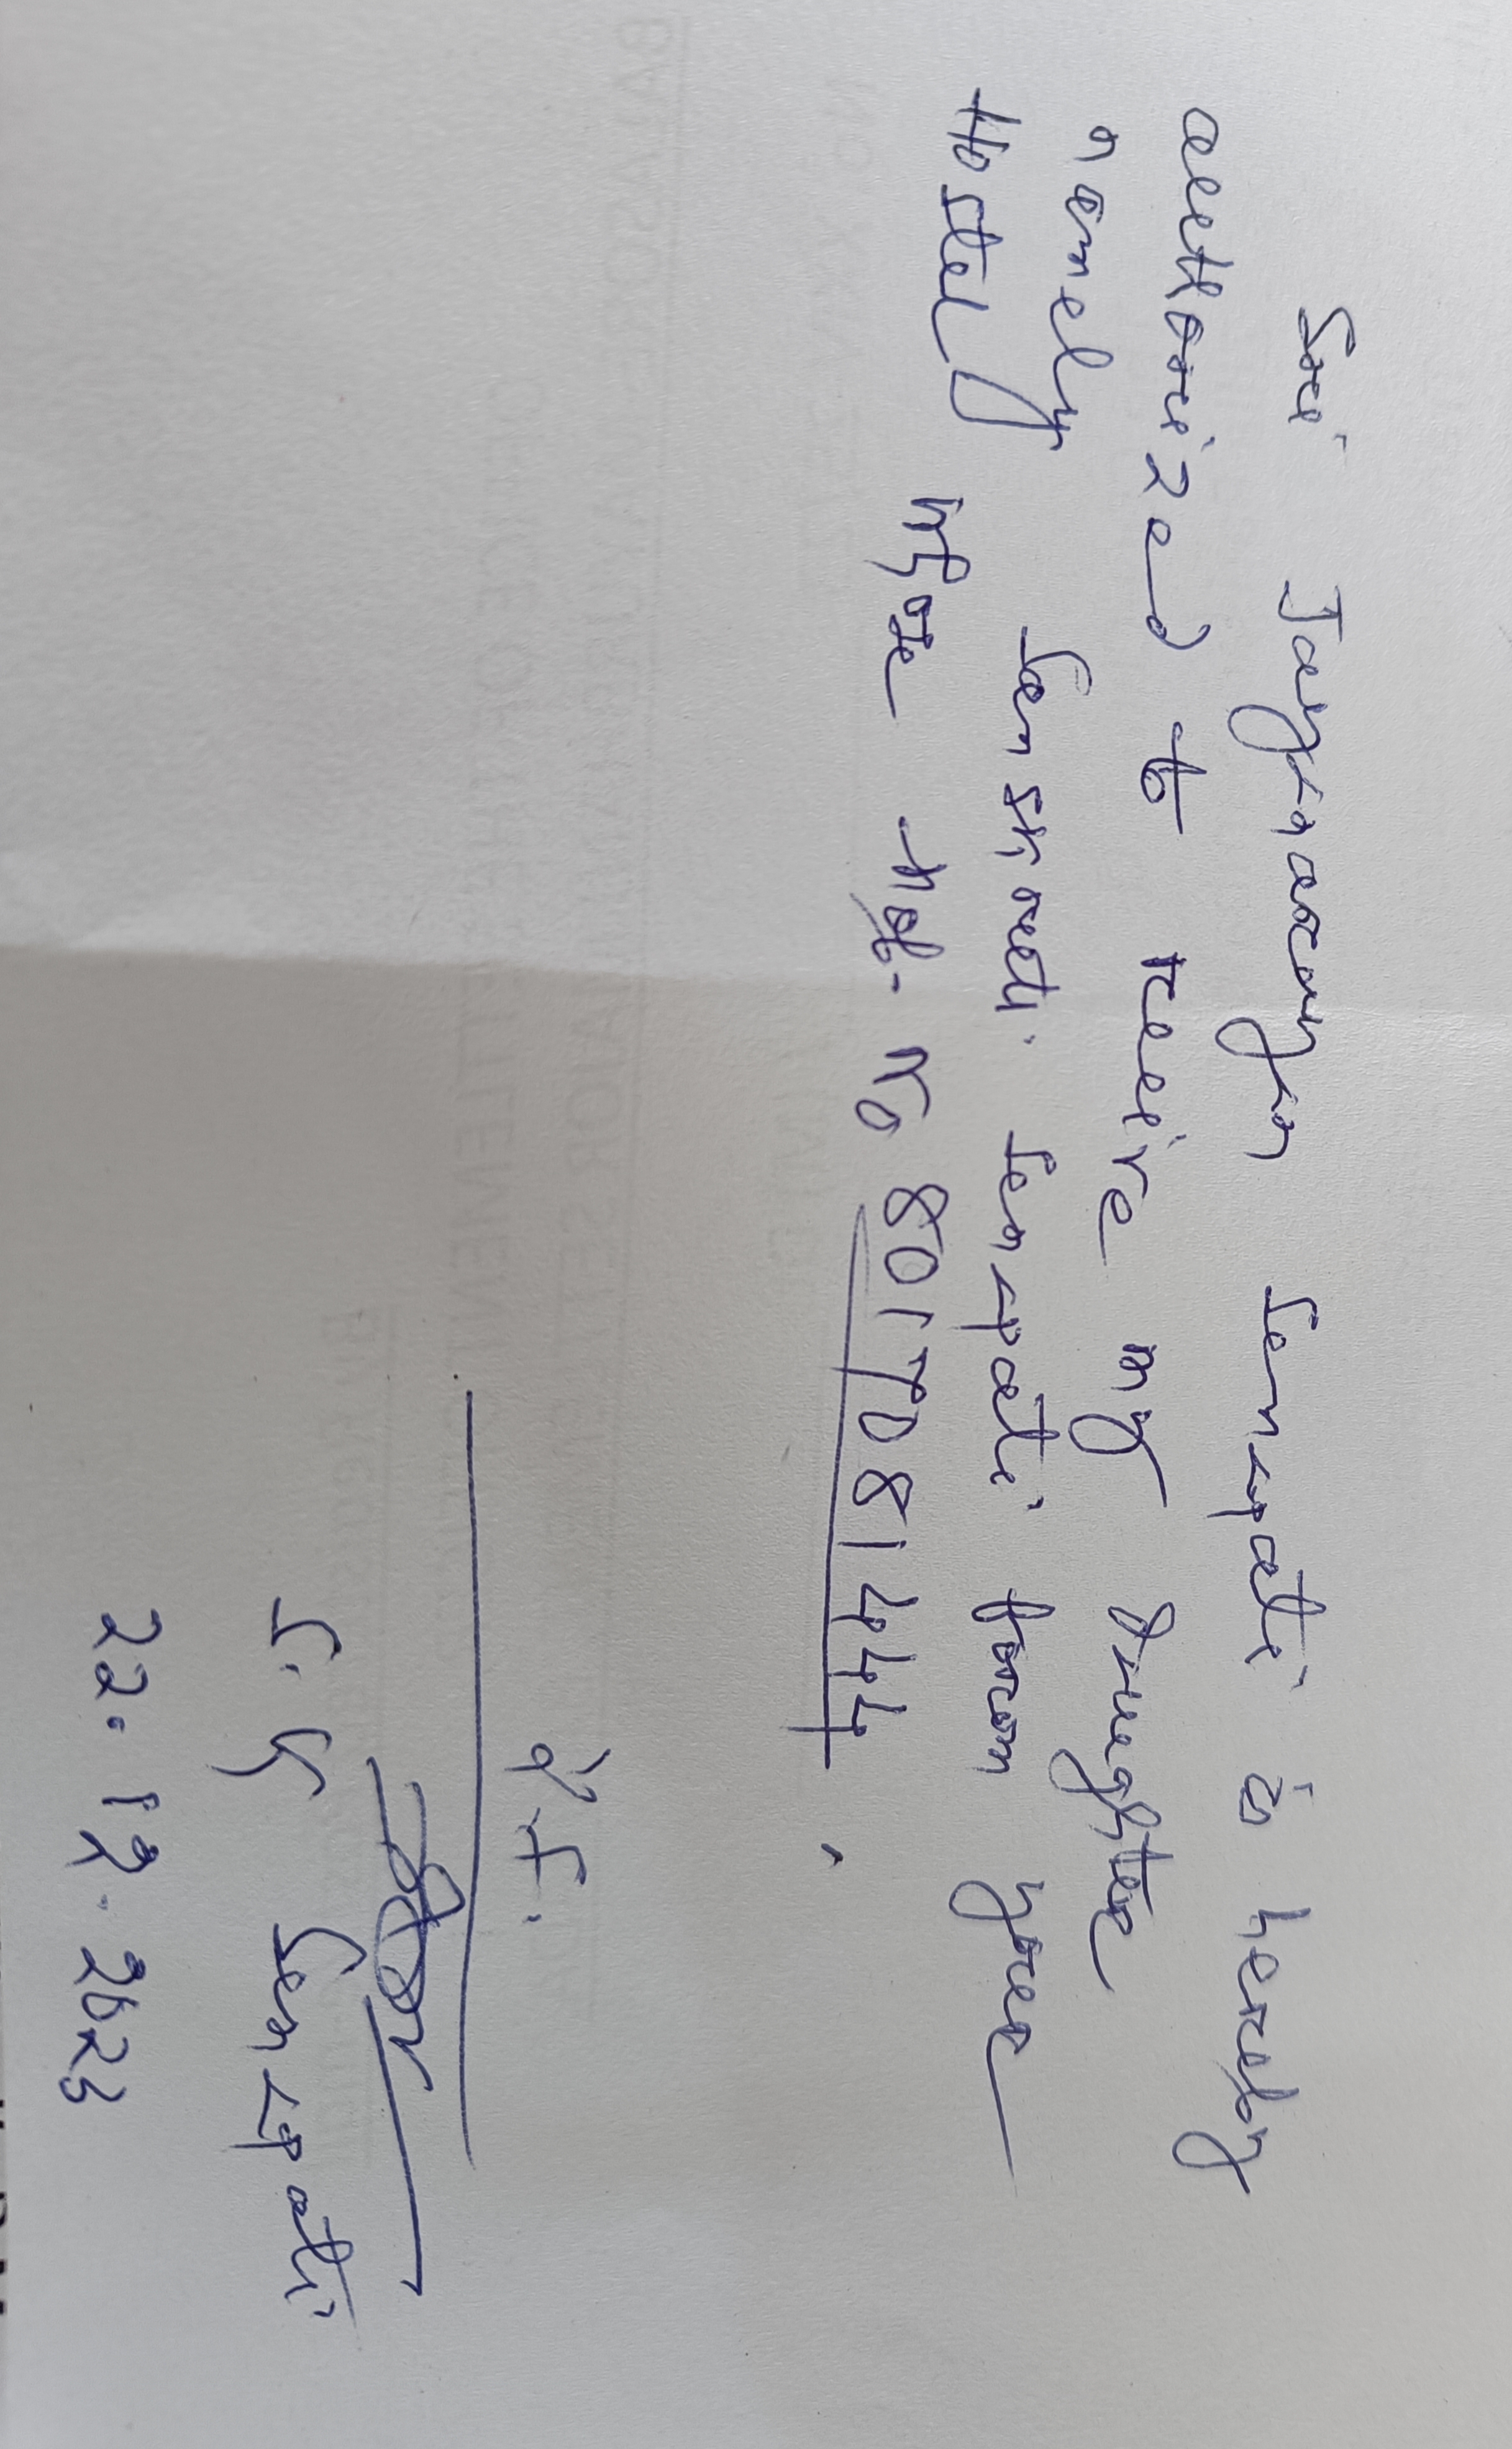 Sri Jagnarayan Senapati is hereby
authorized to receive my Daughter
namely Sanskruti Senapati from your
Hostel Mob. No 8017081444
Y.F.
S. K Senapati
22.12.2023